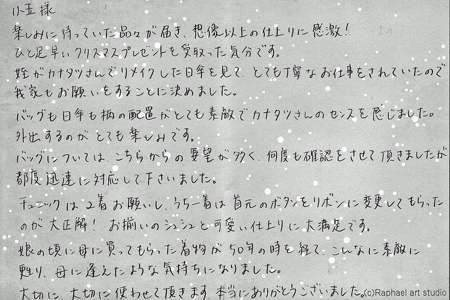 小玉様
楽しみに待っていた品々が届き、想像以上の仕上りに感激!
ひと足早いクリスマスプレゼントを受取った気分です。
姪がカナタツさんでリメイクした日傘を見て、とても丁寧なお仕事をされていたので
我家もお願いをすることに決めました。
バッグも日傘も柄の配置がとても素敵でカナタツさんのセンスを感じました。
外出するのがとても楽しみです。
バッグについては、こちらからの要望が多く、何度も確認をさせて頂きましたが
都度迅速に対応して下さいました。
チュニックは2着お願いし、うち一着は首元のボタンをリボンに変更してもらった
のが大正解! お揃いのシュシュと可愛い仕上りに大満足です。
娘の頃に母に買ってもらった着物が50年の時を経て、こんなに素敵に
甦り、母に逢えたような気持ちになりました。
大切に、大切に使わせて頂きます。本当にありがとうございました。
(c)Raphael art studio